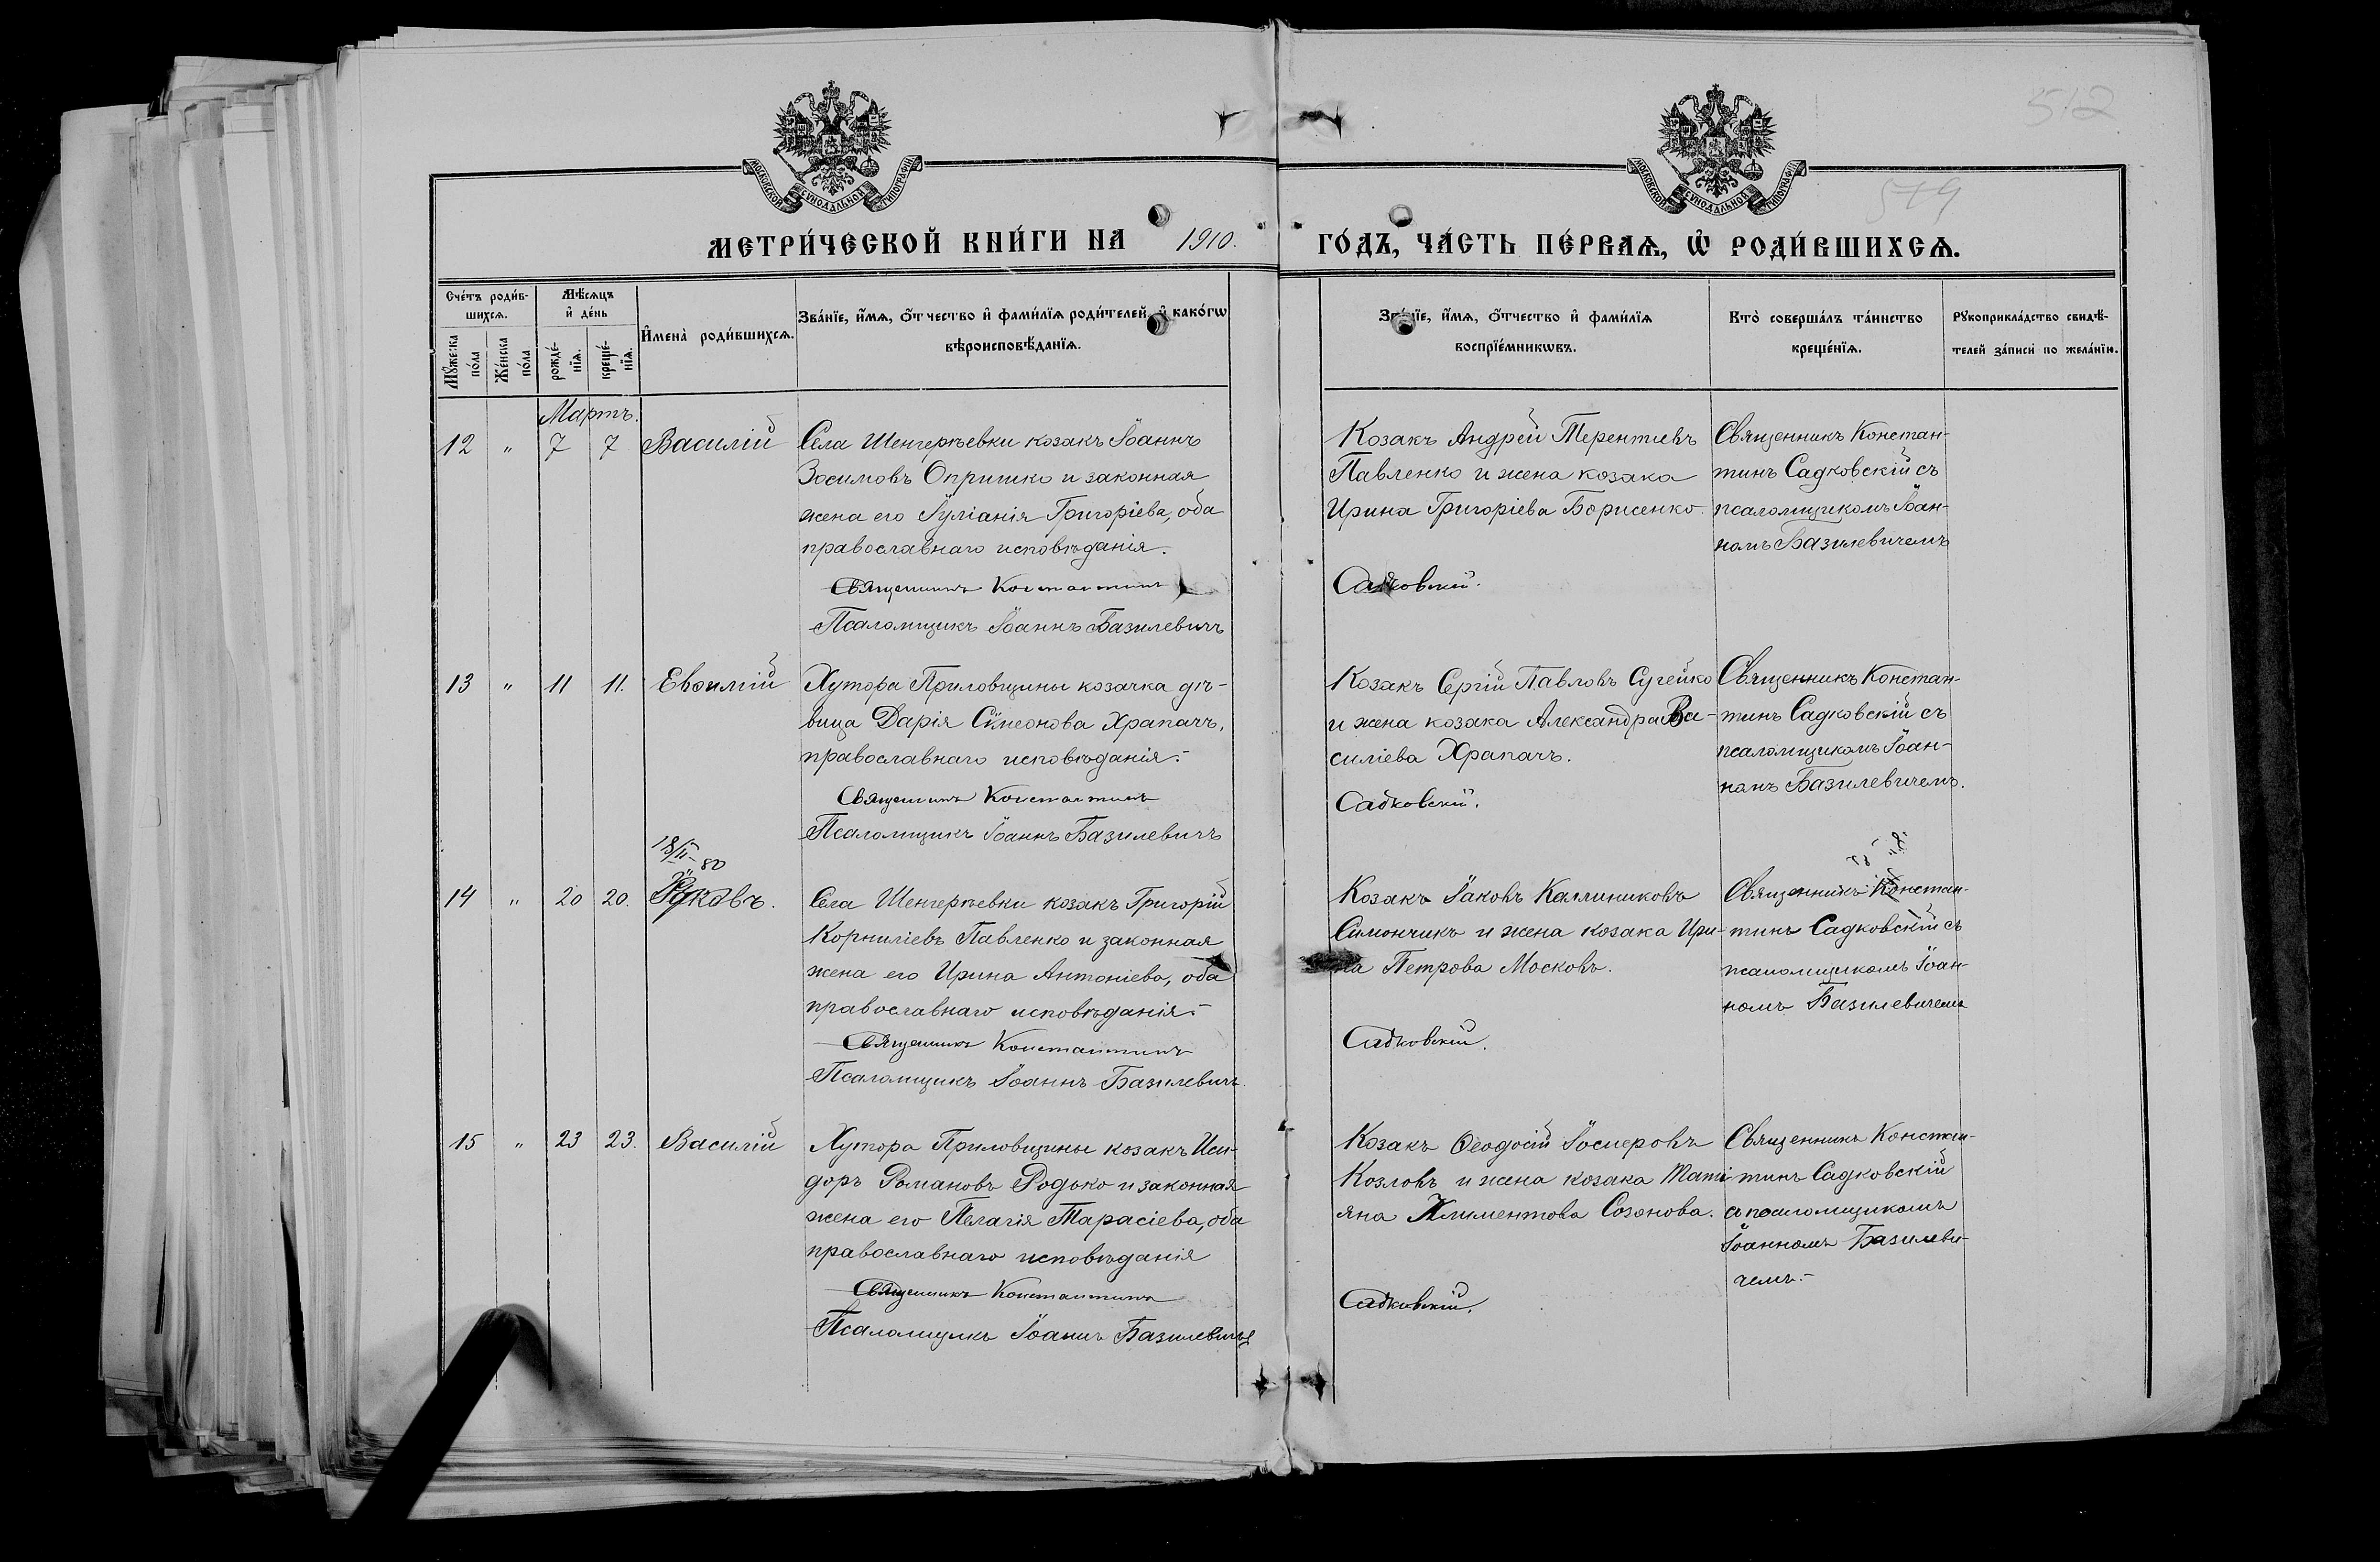 512
519
МОСКОВСКОЙ СѴНОДАЛЬНОЙ ТИПОГРАФІИ
МОСКОВСКОЙ СѴНОДАЛЬНОЙ ТИПОГРАФІИ
МЕТРИ́ЧЕСКОЙ КНИ́ГИ НА 1910. ГО́ДЪ, ЧА́СТЬ ПЕ́РВАѦ, Ѡ҆ РОДИ́ВШИХСѦ.
Сче́тъ роди́в-
шихсѧ.
Мꙋ́жеска по́ла
Же́нска по́ла
Мѣ́сѧцъ и҆ де́нь
рожде́-нїѧ.
креще́-нїѧ.
И҆мена̀ роди́вшихсѧ.
Зва́нїе, и҆́мѧ, ѻ҆́тчество и҆ фами́лїѧ роди́телей, и҆ како́гѡ
вѣроисповѣ́данїѧ.
Зва́нїе, и҆́мѧ, ѻ҆́тчество и҆ фами́лїѧ
воспрїе́мникѡвъ.
Кто̀ соверша́лъ та́инство
креще́нїѧ.
Рꙋкоприкла́дство свидѣ́-
телей за́писи по жела́нїю.
Мартъ.
12 " 7 7 Василій
Села Шенгерѣевки козакъ Іоаннъ
Зосимовъ Опришко и законная
жена его Іуліанія Григоріева, оба
православнаго исповѣданія.
Священникъ Константинъ
Псаломщикъ Іоаннъ Базилевичъ
Козакъ Андрей Терентіевъ
Павленко и жена козака
Ирина Григоріева Борисенко.
Садковскій.
Священникъ Констан-
тинъ Садковскій съ
псаломщикомъ Іоан-
номъ Базилевичемъ
13 " 11 11. Евѳимій
Хутора Приловщины козачка дѣ-
вица Дарія Сѵмеонова Храпачъ,
православнаго исповѣданія.-
Священникъ Константинъ
Псаломщикъ Іоаннъ Базилевичъ
Козакъ Сергій Павловъ Сугейко
и жена козака Александра Ва-
силіева Храпачъ.
Садковскій.
Священникъ Констан-
тинъ Садковскій съ
псаломщикомъ Іоан-
номъ Базилевичемъ.
18/II-80
14 " 20 20. Іаковъ.
Села Шенгерѣевки козакъ Григорій
Корниліевъ Павленко и законная
жена его Ирина Антоніева, оба
православнаго исповѣданія.-
Священникъ Константинъ
Псаломщикъ Іоаннъ Базилевичъ.
Козакъ Іаковъ Каллиниковъ
Симончикъ и жена козака Ири-
на Петрова Московъ.
Садковскій.
Священникъ Констан-
тинъ Садковскій съ
псаломщикомъ Іоан-
номъ Базилевичемъ
15 " 23 23. Василій
Хутора Приловщины козакъ Иси-
доръ Романовъ Родько и законная
жена его Пелагія Тарасіева, оба
православнаго исповѣданія
Священникъ Константинъ
Псаломщикъ Іоаннъ Базилевичъ
Козакъ Ѳеодосій Іосиеровъ
Козловъ и жена козака Таті-
яна Климентова Созонова.
Садковскій.
Священникъ Констан-
тинъ Садковскій
с псаломщикомъ
Іоанномъ Базилеви-
чемъ.-